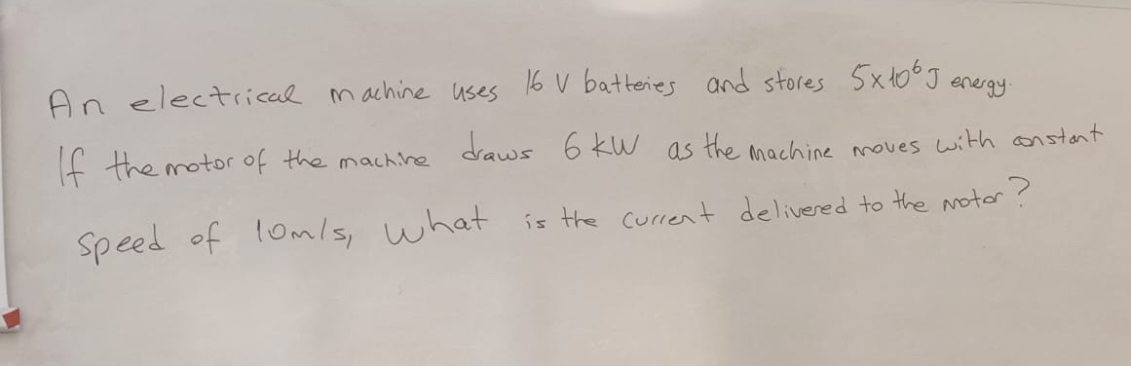 An electrical machine uses 16 V batteries and stores 5x10⁶ J energy.
If the motor of the machine draws 6 kW as the machine moves with constant
speed of 10m/s, what is the current delivered to the motor?